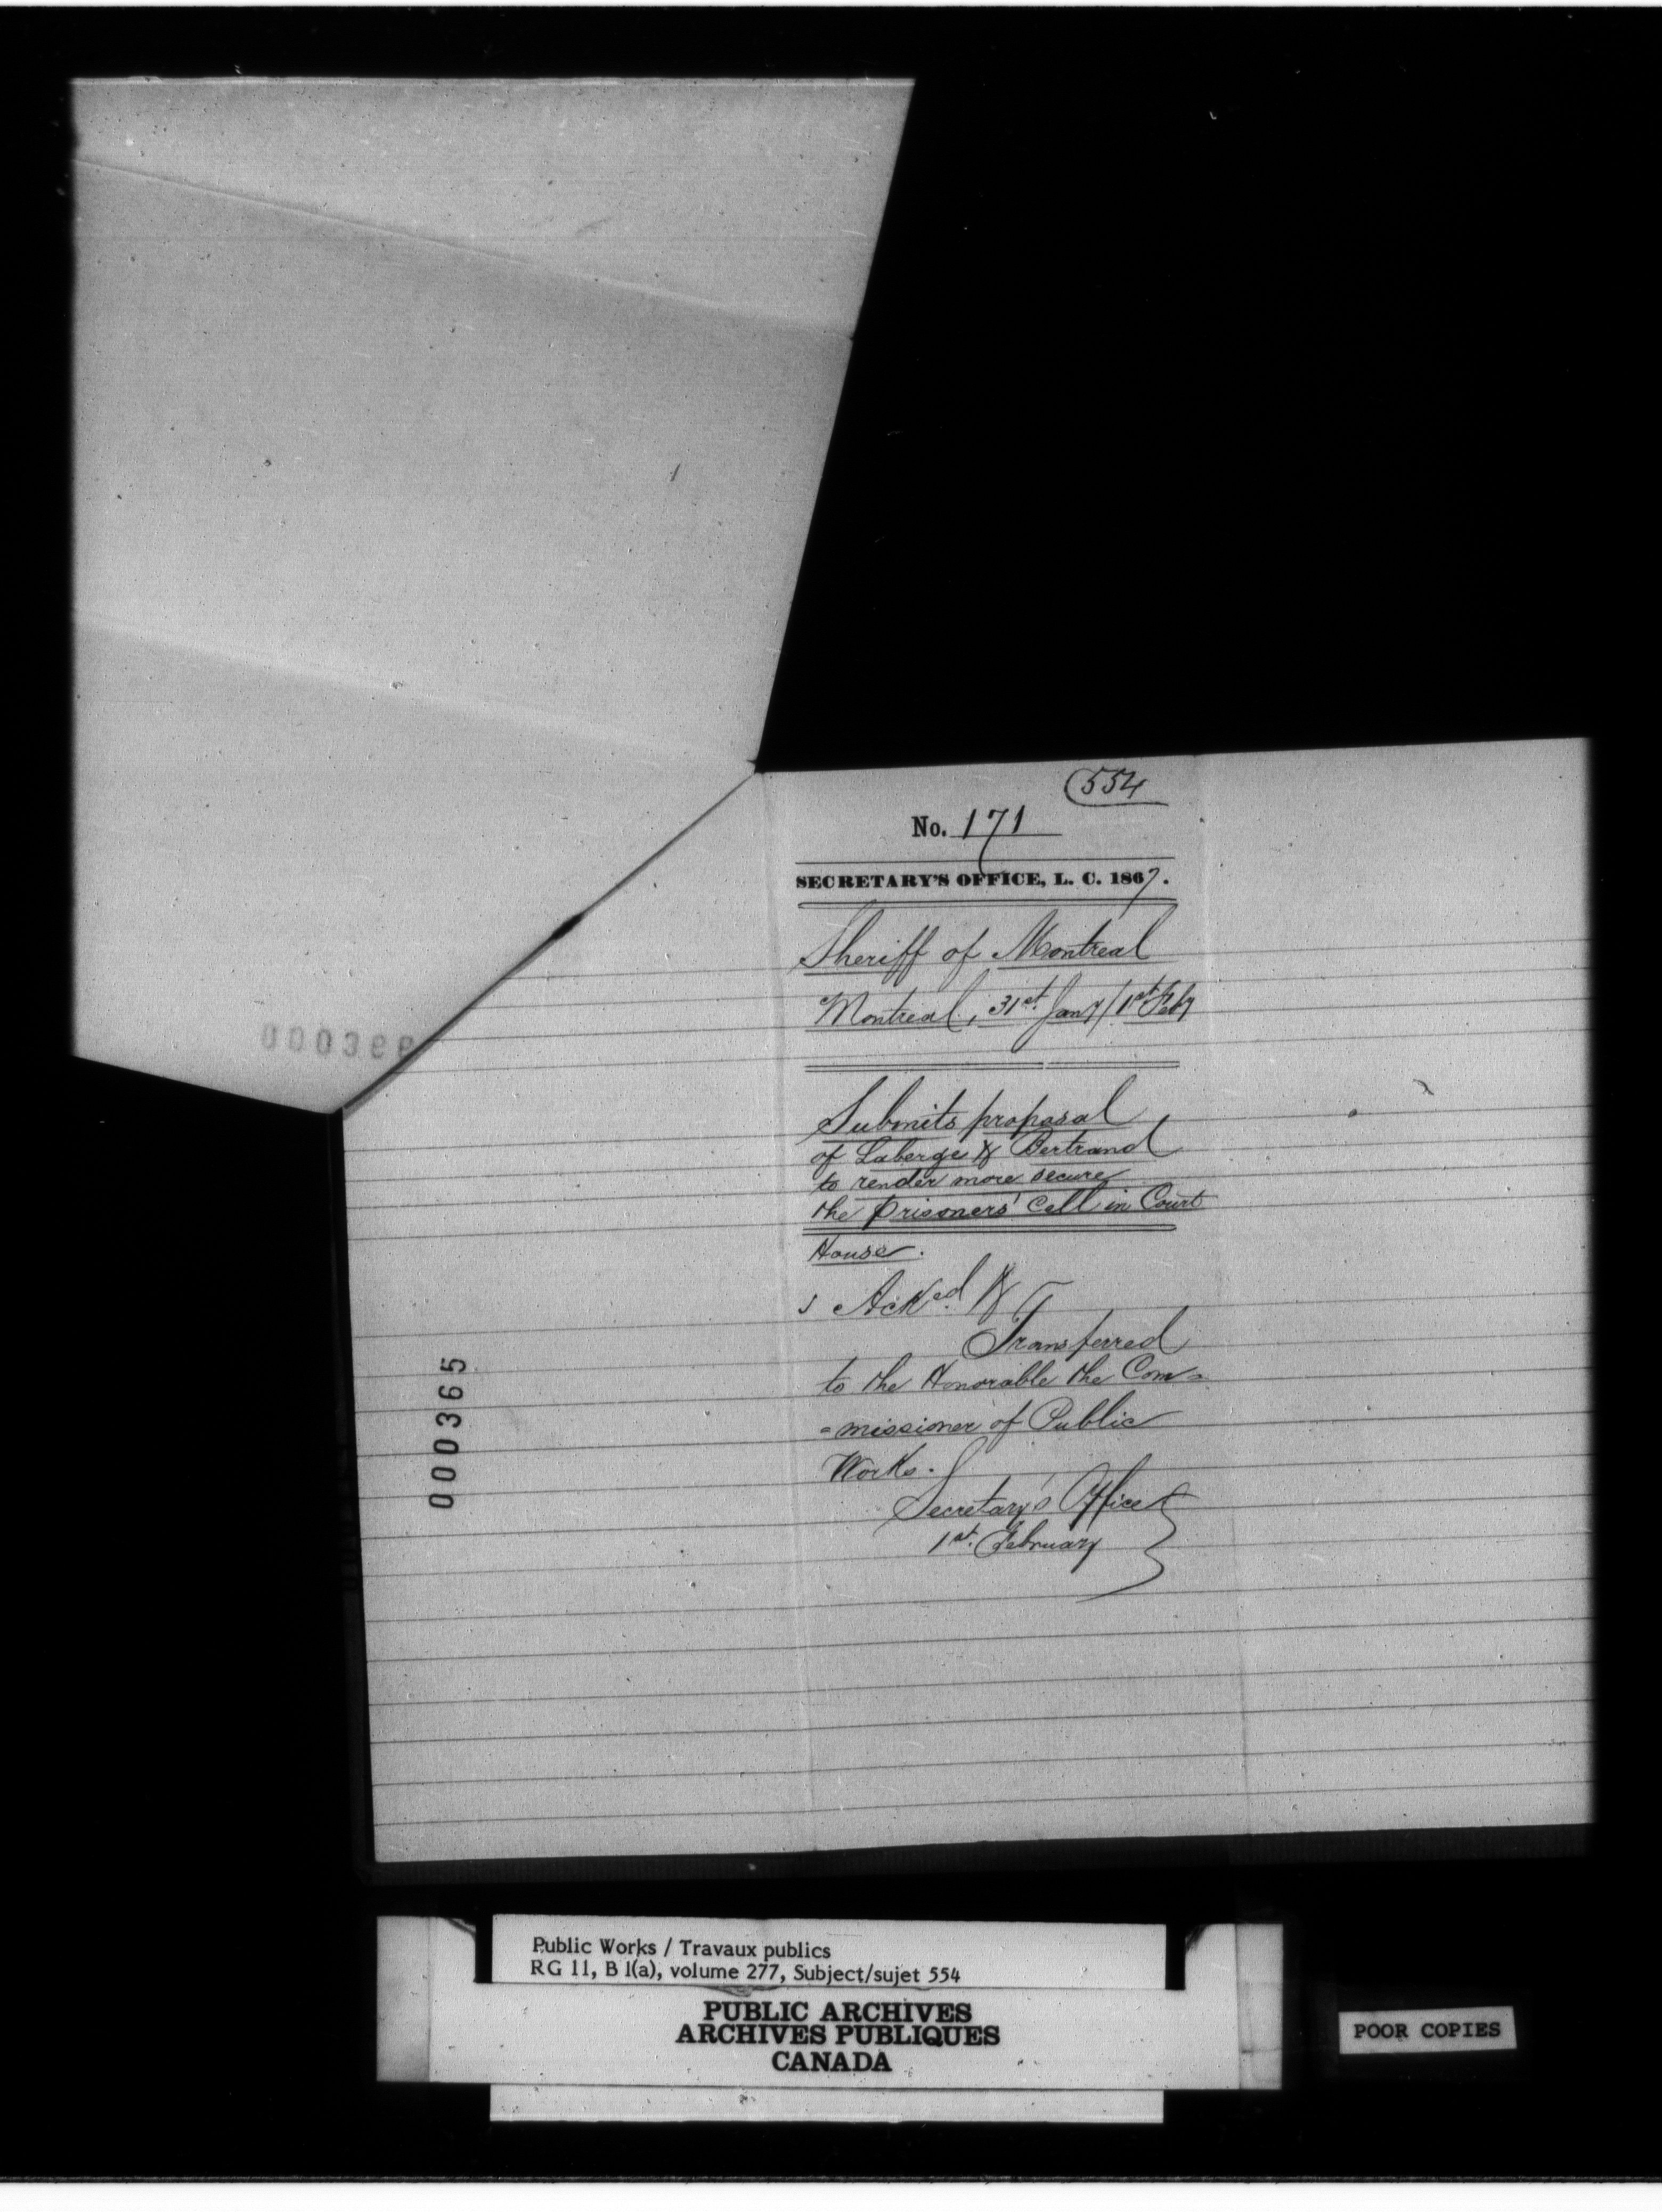 554
No. 171
SECRETARY'S OFFICE, L. C. 1867.
Sheriff of Montreal
Montreal, 31st. Jany/1st Feby
Submits proposal
of Laberge & Bertrand
to render more secure
the prisoners' cell in Court
House.
Acked. &
Transferred
to the Honorable the Com=
=missioner of Public
Works.
Secretary's Office
1st. February
000365
Public Works / Travaux publics
RG 11, B 1(a), volume 277, Subject/sujet 554
PUBLIC ARCHIVES
ARCHIVES PUBLIQUES
CANADA
POOR COPIES